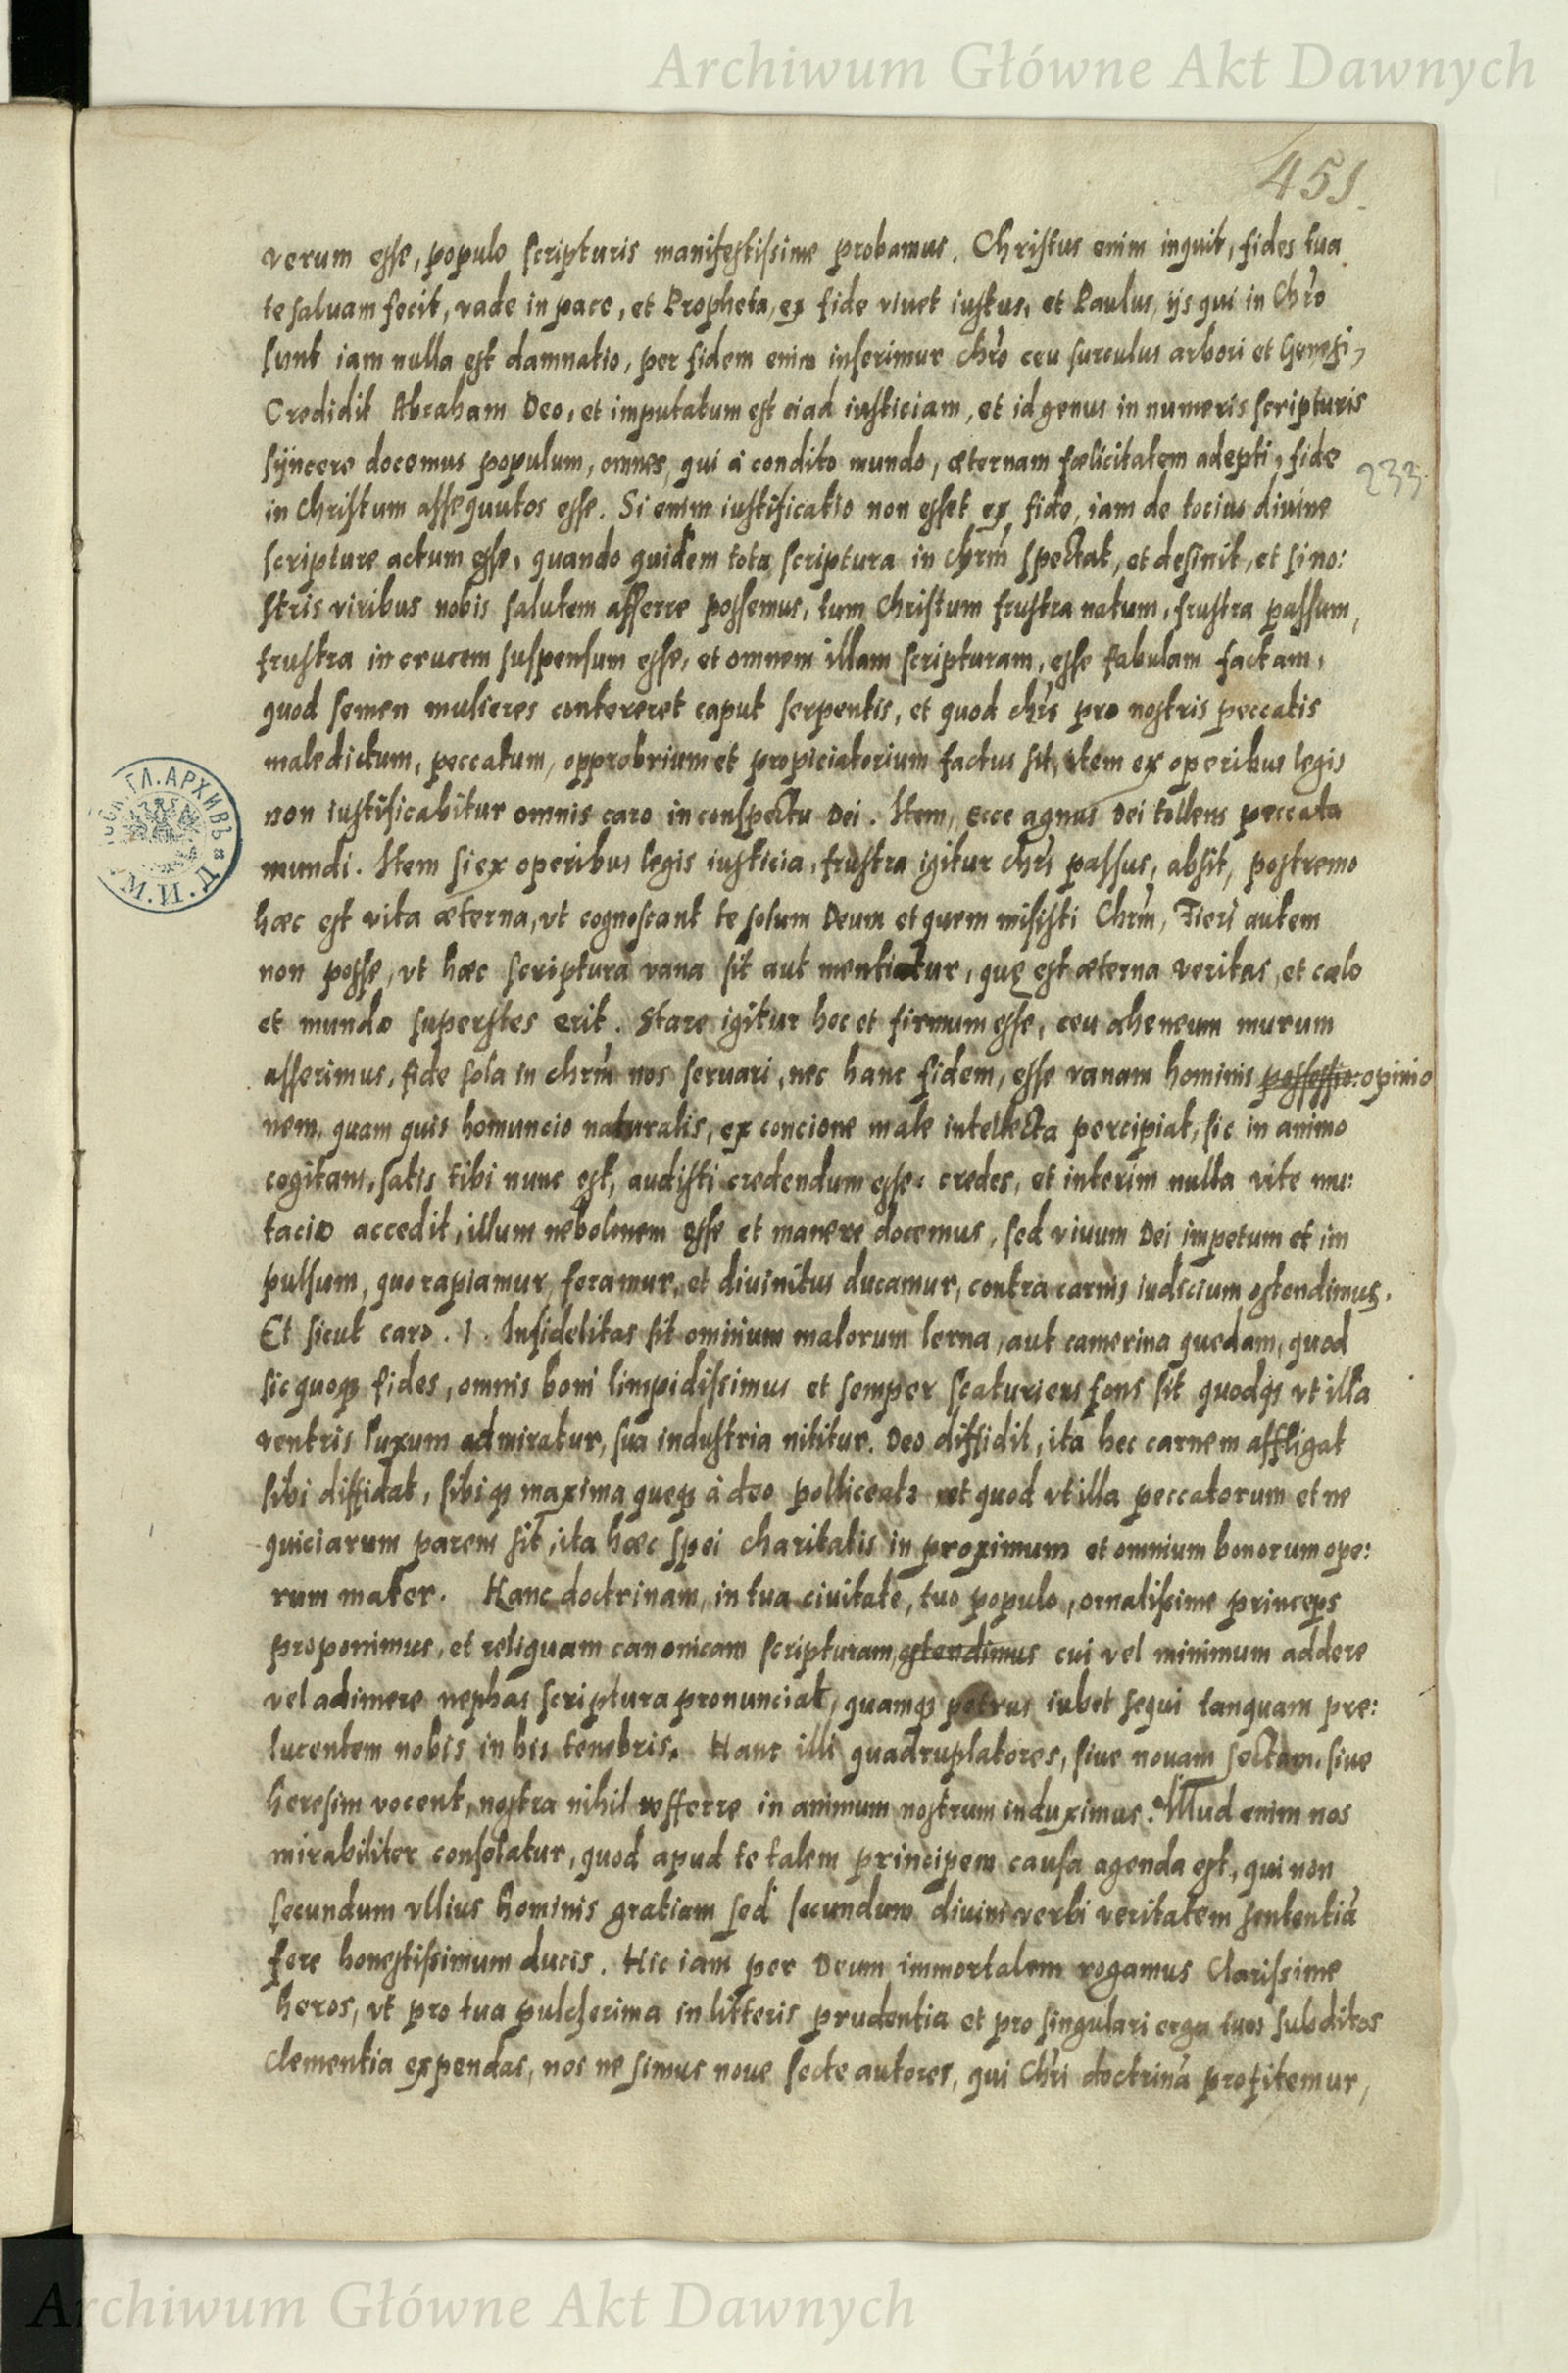 Archiwum Główne Akt Dawnych
451
verum esse, populo scripturis manifestissime probamus. Christus enim inquit, fides tua
te saluam fecit, vade in pace, et Propheta, ex fide viuet iustus, et Paulus, ijs qui in Chr̃o
sunt iam nulla est damnatio, per fidem enim inserimur chr̃o ceu surculus arbori et Genesi,
Credidit Abraham Deo, et imputatum est ei ad iusticiam, et id genus in numeris scripturis
sÿncere docemus populum, omnes, qui à condito mundo, æternam fœlicitatem adepti, fide
233.
in Christum assequutos esse. Si enim iustificatio non esset ex fide, iam de tocius diuine
scripture actum esse, quando quidem tota scriptura in chrm̃ spectat, et desinit, et si no:
stris viribus nobis salutem afferre possemus, tum Christum frustra natum, frustra passum,
frustra in crucem suspensum esse, et omnem illam scripturam, esse fabulam factam,
quod semen mulieres contereret caput serpentis, et quod chr̃s pro nostris peccatis
maledictum, peccatum, opprobrium et propiciatorium factus sit, item ex operibus legis
non iustificabitur omnis caro in conspectu Dei. Item, Ecce agnus Dei tollens peccata
mundi. Item si ex operibus legis iusticia, frustra igitur chr̃s passus, absit, postremo
hæc est vita æterna, vt cognoscant te solum Deum et quem misisti Chrm̃, Fieri autem
non posse, vt hæc scriptura vana sit aut mentiatur, quę est æterna veritas, et cælo
et mundo superstes erit. Stare igitur hoc et firmum esse, ceu aheneum murum
asserimus, fide sola in chrm̃ nos seruari, nec hanc fidem, esse vanam hominis possessio: opinio
nem, quam quis homuncio naturalis, ex concione male intellecta percipiat, sic in animo
cogitans, satis tibi nunc est, audisti credendum esse: credes, et interim nulla vite mu:
tacio accedit, illum nebolonem esse et manere docemus, sed viuum Dei impetum et im
pulsum, quo rapiamur, feramur, et diuinitus ducamur, contra carnis iudicium ostendimus.
Et sicut caro .1. Infidelitas sit omnium malorum lerna, aut camerina quedam, quod
sic quoqꝫ fides, omnis boni limpidissimus et semper scaturiens fons sit quodqꝫ vt illa
ventris luxum admiratur, sua industria nititur. Deo diffidit, ita hec carnem affligat
sibi diffidat, sibiqꝫ maxima queqꝫ à deo polliceatꝛ et quod vt illa peccatorum et ne
quiciarum parens sit, ita hæc spei charitatis in proximum et omnium bonorum ope:
rum mater. Hanc doctrinam, in tua ciuitate, tuo populo, ornatissime princeps
proponimus, et reliquam canonicam scripturam, ostendimus cui vel minimum addere
vel adimere nephas scriptura pronunciat, quamqꝫ petrus iubet sequi tanquam pre:
lucentem nobis in his tenebris. Hanc illi quadruplatores, siue nouam sectam, siue
heresim vocent, nostra nihil refferre in animum nostrum induximus. Illud enim nos
mirabiliter consolatur, quod apud te talem principem causa agenda est, qui non
secundum vllius hominis gratiam sed secundum diuini verbi veritatem sententiã
fere honestissimum ducis. Hic iam per Deum immortalem rogamus Clarissime
heros, vt pro tua pulcherima in litteris prudentia et pro singulari erga tuos subditos
clementia expendas, nos ne simus noue secte autores, qui Chr̃i doctrinã profitemur,
Archiwum Główne Akt Dawnych